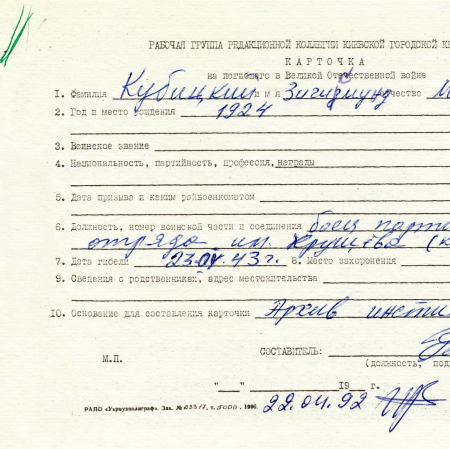 РАБОЧАЯ ГРУППА РЕДАКЦИОННОЙ КОЛЛЕГИИ КИЕВСКОЙ ГОРОДСКОЙ
КАРТОЧКА
на погибшего в Великой Отечественной войне
1. Фамилия Кубицкий имя Зигизмунд отчество
2. Год и место рождения 1924
3. Воинское звание
4. Национальность, партийность, профессия, награды
5. Дата призыва и каким райвоенкоматом
6. Должность, номер воинской части и соединения боец
отряда им. Хрущёва
7. Дата гибели 23.04.43 г. 8. Место захоронения
9. Сведения о родственниках, адрес местожительства
10. Основание для составления карточки Архив
СОСТАВИТЕЛЬ:
(должность,
М.П.
"___"___________19__ г.
22.04.92
РАПО «Укрвузполиграф». Зак. №